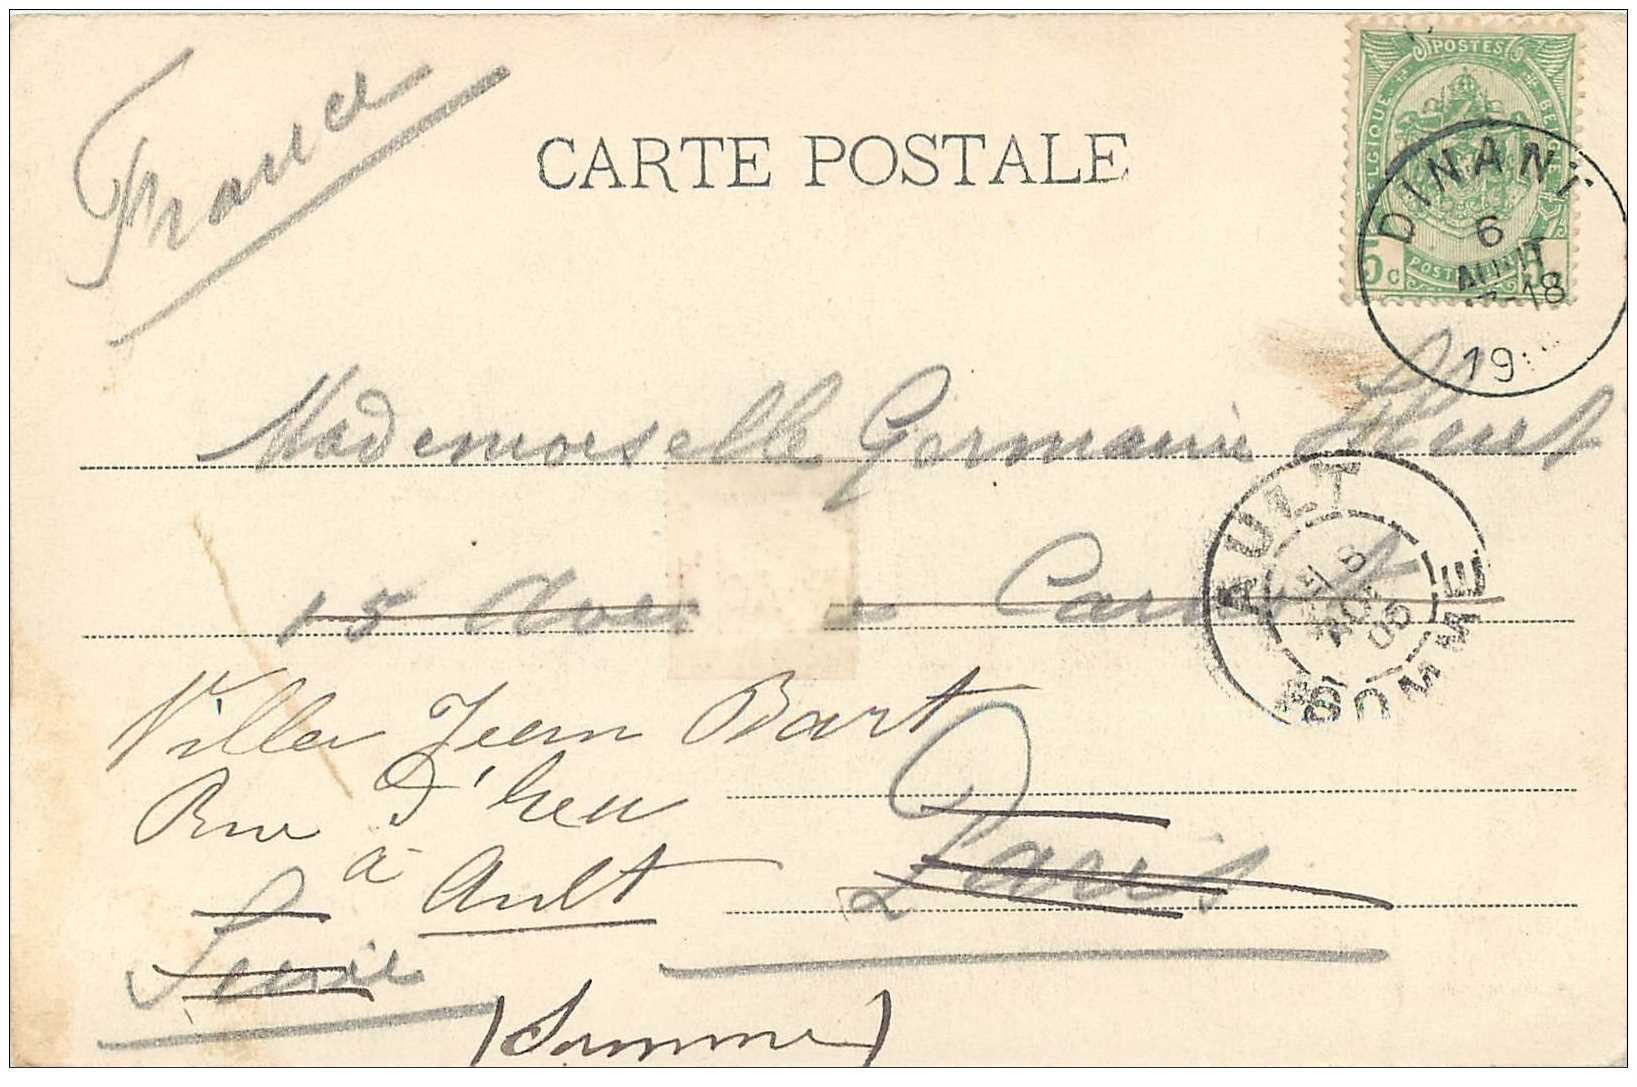 France
CARTE POSTALE
POSTES
BELGIQUE
5 c
DINANT
6
AOUT
-18
19
Mademoiselle Germaine Huet
AULT
8
AOUT
06
SOMME
15 Carnot
Villa Jean Bart
Rue d'heu
à Ault
Paris
Seine
(Somme)